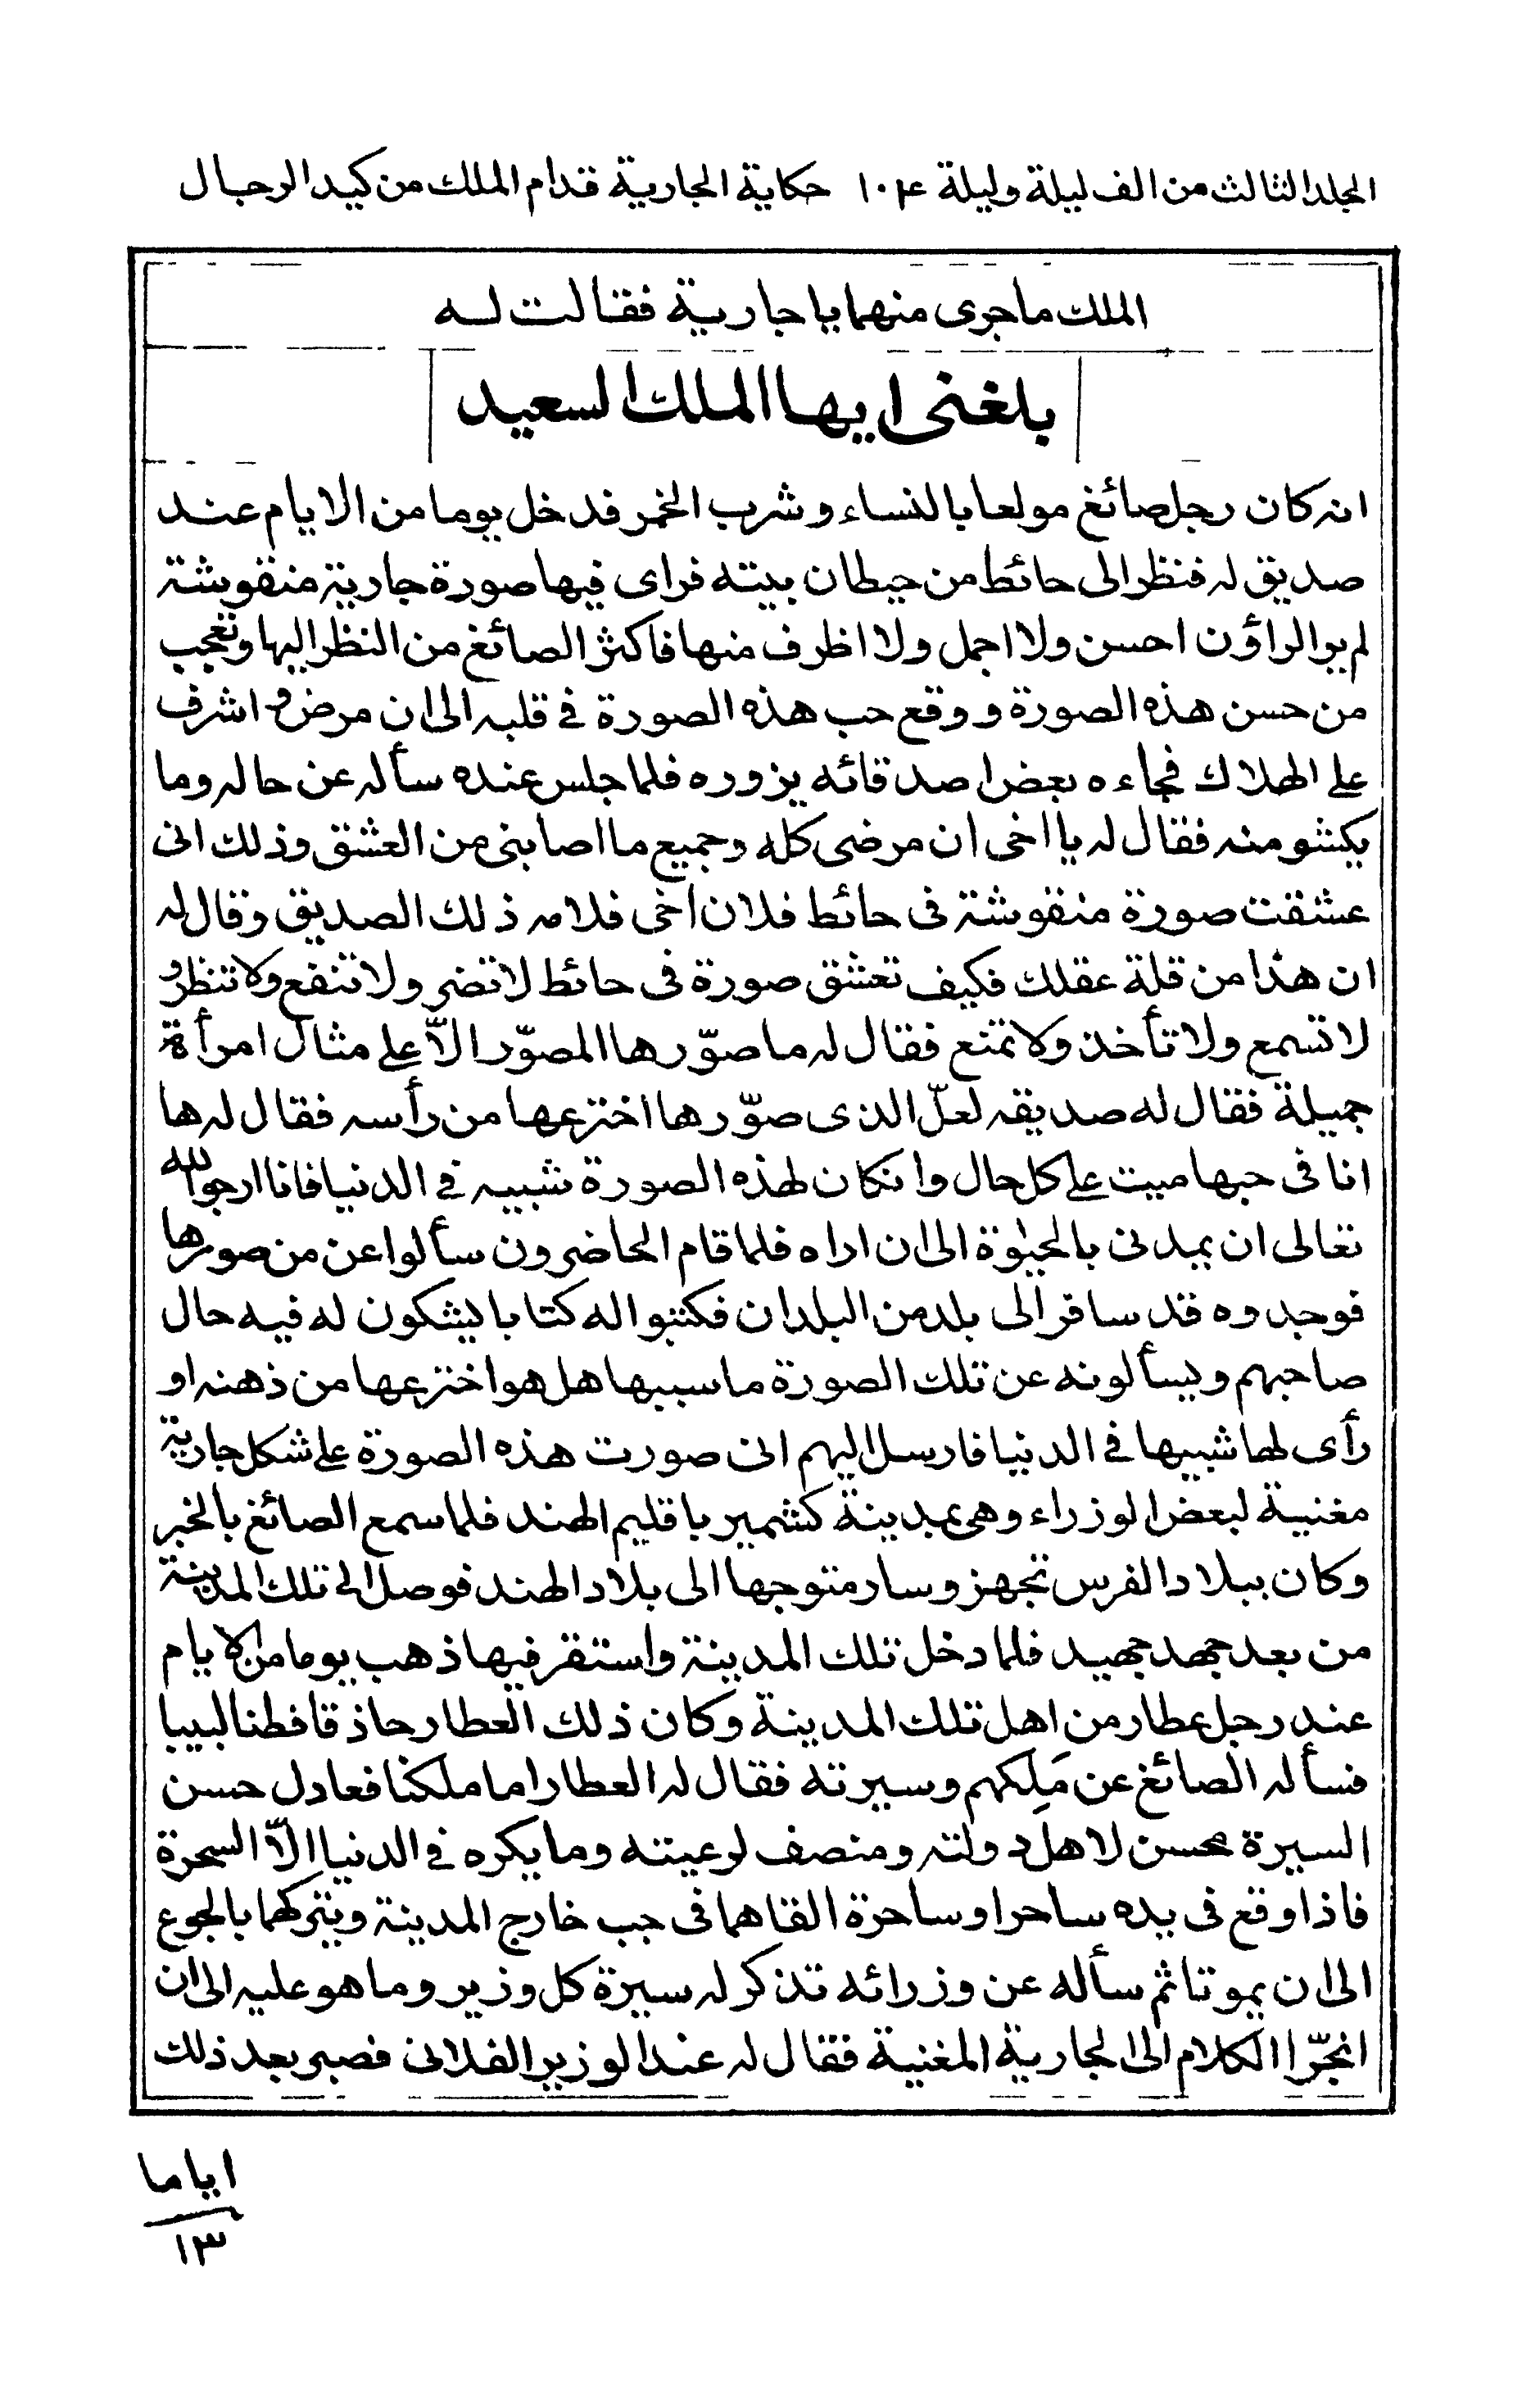 المجلد الثالث من الف ليلة وليلة ١٠٤ حكاية الجارية قدام الملك من كيد الرجال
الملك ماجرى منهما يا جارية فقالت له
بلغنى ايها الملك السعيد
انه كان رجل صائغ مولعا بالنساء وشرب الخمر فدخل يوما من الايام عند
صديق له فنظر الى حائط من حيطان بيته فراى فيها صورة جارية منقوشة
لم ير الراؤن احسن ولا اجمل ولا اظرف منها فاكثر الصائغ من النظر اليها وتعجب
من حسن هذه الصورة ووقع حب هذه الصورة فى قلبه الى ان مرض و اشرف
على الهلاك فجاءه بعض اصدقائه يزوره فلما جلس عنده سأله عن حاله وما
يكشو منه فقال له يا اخى ان مرضى كله وجميع ما اصابنى من العشق وذلك انى
عشقت صورة منقوشة فى حائط فلان اخى فلامه ذلك الصديق وقال له
ان هذا من قلة عقلك فكيف تعشق صورة فى حائط لا تضر ولا تنفع ولا تنظر و
لا تسمع ولا تأخذ ولا تمنع فقال له ما صوّرها المصوّر الاّ على مثال امرأة
جميلة فقال له صديقه لعلّ الذى صوّرها اخترعها من رأسه فقال له ها
انا فى حبها ميت على كل حال وان كان لهذه الصورة شبيه فى الدنيا فانا ارجو الله
تعالى ان يمدنى بالحيٰوة الى ان اراه فلما قام الحاضرون سألوا عن من صورها
فوجدوه قد سافر الى بلد من البلدان فكتبوا له كتابا يشكون له فيه حال
صاحبهم ويسألونه عن تلك الصورة ما سببها هل هو اخترعها من ذهنه او
رأى لها شبيها فى الدنيا فارسل اليهم انى صورت هذه الصورة على شكل جارية
مغنية لبعض الوزراء وهى بمدينة كشمير باقليم الهند فلما سمع الصائغ بالخبر
وكان ببلاد الفرس تجهز وسار متوجها الى بلاد الهند فوصل الى تلك المدينة
من بعد جهد جهيد فلما دخل تلك المدينة واستقر فيها ذهب يوما من الايام
عند رجل عطار من اهل تلك المدينة وكان ذلك العطار حاذقا فطنا لبيبا
فسأله الصائغ عن مَلِكهم وسيرته فقال له العطار اما ملكنا فعادل حسن
السيرة محسن لاهل دولته ومنصف لرعيته وما يكره فى الدنيا الاّ السحرة
فاذا وقع فى يده ساحر او ساحرة القاهما فى جب خارج المدينة ويتركهما بالجوع
الى ان يموتا ثم سأله عن وزرائه تذكر له سيرة كل وزير وما هو عليه الى ان
انجرّ الكلام الى الجارية المغنية فقال له عند الوزير الفلانى فصبر بعد ذلك
اياما
١٣